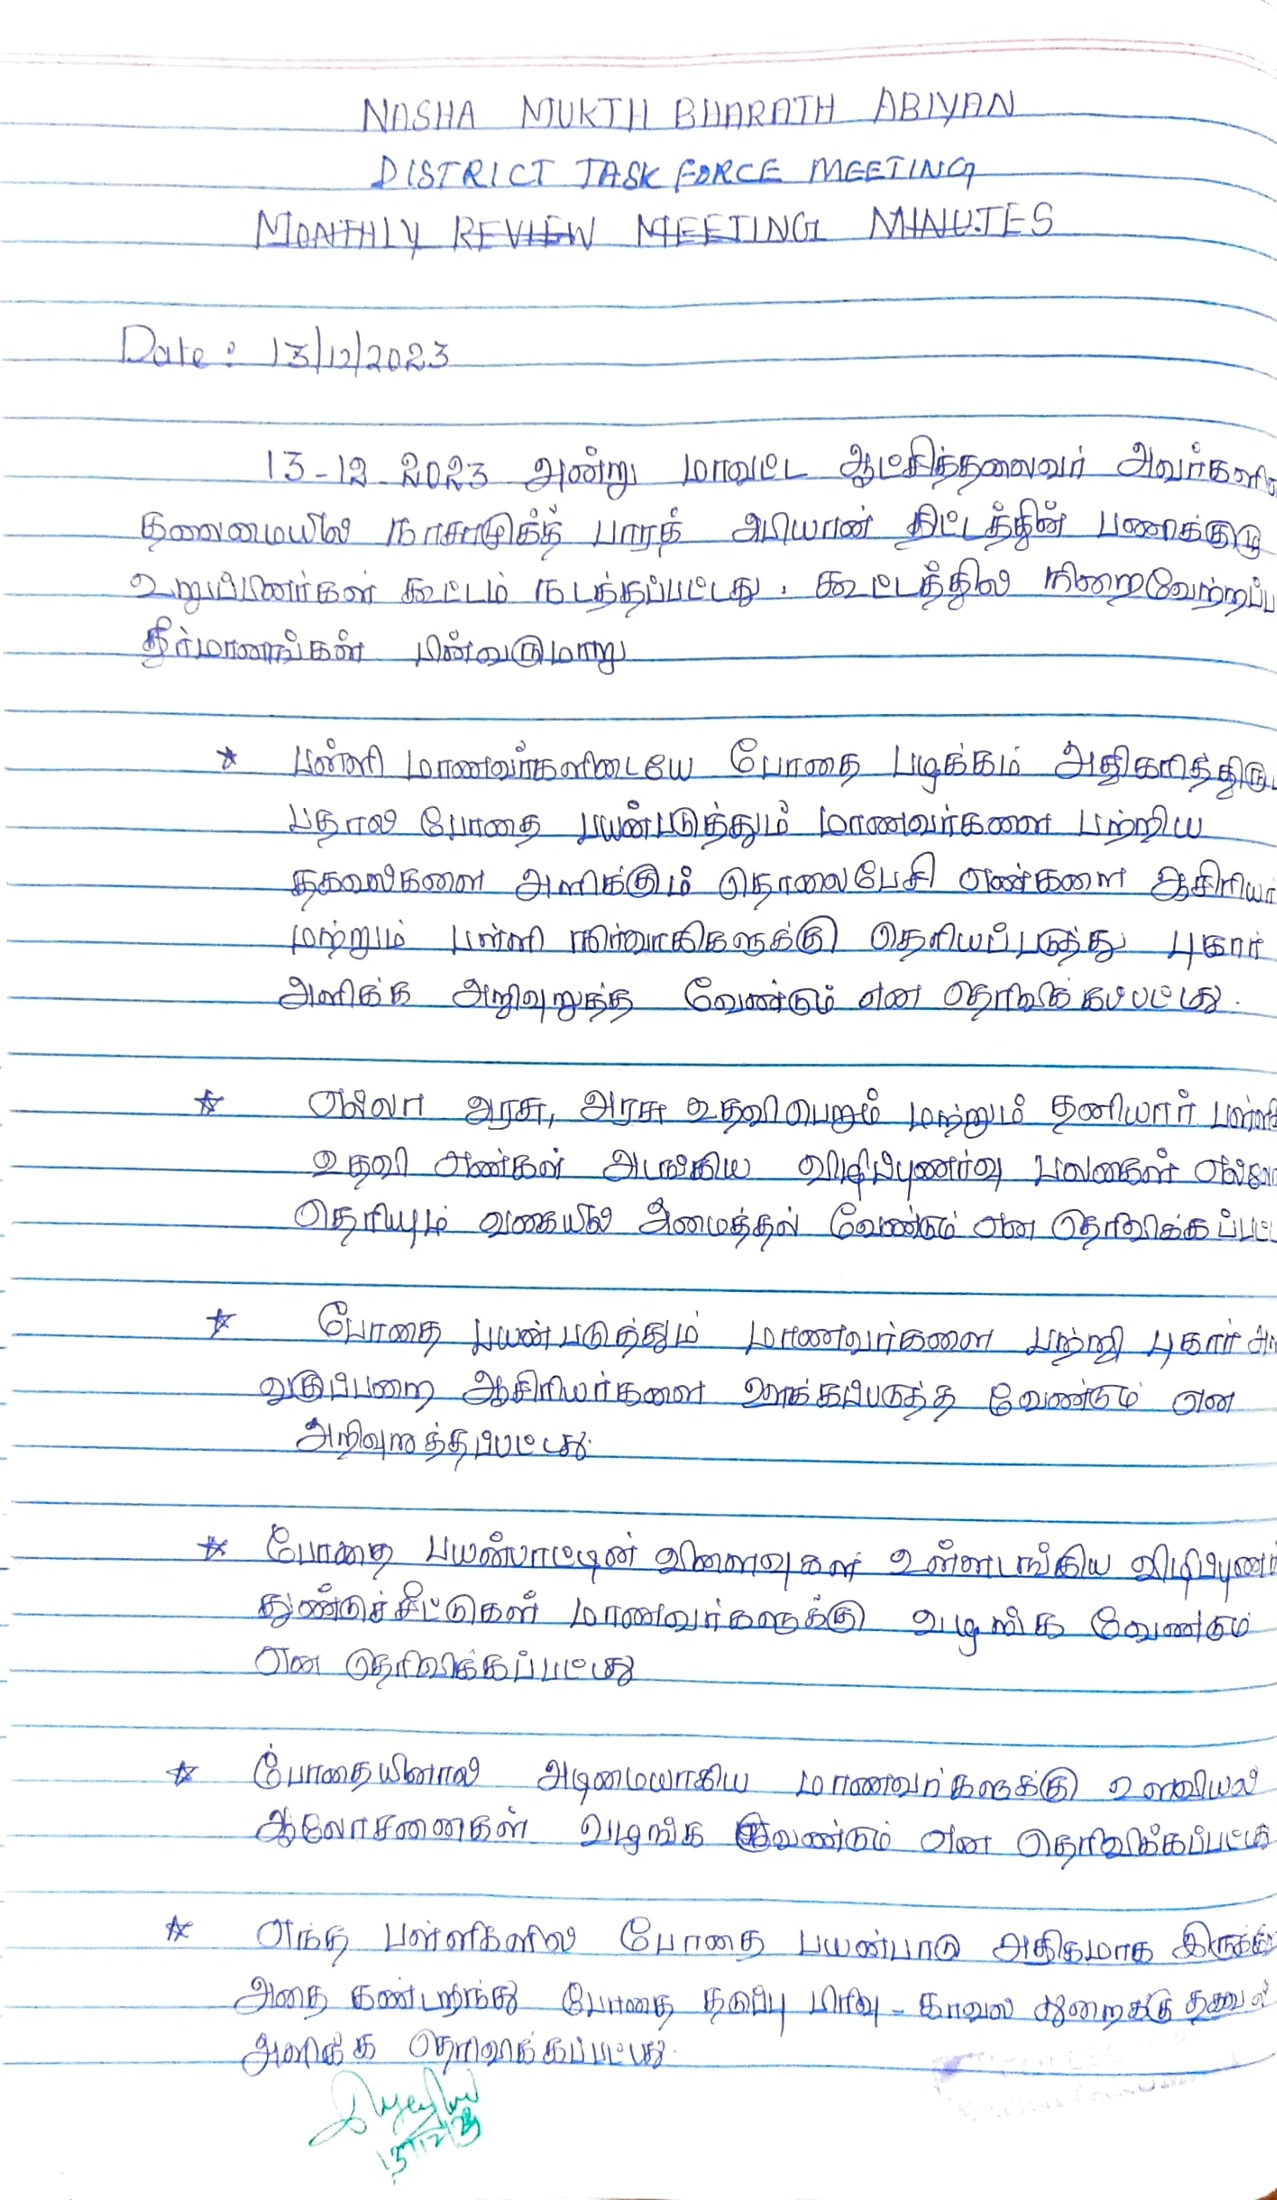 NASHA MUKTH BHARATH ABIYAN
DISTRICT TASK FORCE MEETING
MONTHLY REVIEW MEETING MINUTES
Date : 13/12/2023
13-12-2023 அன்று மாவட்ட ஆட்சித்தலைவர் அவர்களி
தலைமையில் நாசாமுக்த் பாரத் அபியான் திட்டத்தின் பணிக்குழு
உறுப்பினர்கள் கூட்டம் நடத்தப்பட்டது. கூட்டத்தில் நிறைவேற்றப்ப
தீர்மானங்கள் பின்வருமாறு
★ பள்ளி மாணவர்களிடையே போதை பழக்கம் அதிகரித்திரு
பதால் போதை பயன்படுத்தும் மாணவர்களை பற்றிய
தகவல்களை அளிக்கும் தொலைபேசி எண்களை ஆசிரியர்
மற்றும் பள்ளி நிர்வாகிகளுக்கு தெரியப்படுத்து புகார்
அளிக்க அறிவுறுத்த வேண்டும் என தெரிவிக்கப்பட்டது.
★ எல்லா அரசு, அரசு உதவிபெறும் மற்றும் தனியார் பள்ளி
உதவி எண்கள் அடங்கிய விழிப்புணர்வு பலகைகள்
தெரியும் வகையில் அமைத்தல் வேண்டும் என தெரிவிக்கப்பட்
★ போதை பயன்படுத்தும் மாணவர்களை பற்றி புகார் அ
வகுப்பறை ஆசிரியர்களை ஊக்கப்படுத்த வேண்டும் என
அறிவுறுத்தப்பட்டது.
★ போதை பயன்பாட்டின் விளைவுகள் உள்ளடங்கிய விழிப்புணர்
துண்டுச்சீட்டுகள் மாணவர்களுக்கு வழங்க வேண்டும்
என தெரிவிக்கப்பட்டது
★ போதையினால் அடிமையாகிய மாணவர்களுக்கு உளவியல்
ஆலோசனைகள் வழங்க வேண்டும் என தெரிவிக்கப்பட்டது
★ எந்த பள்ளிகளில் போதை பயன்பாடு அதிகமாக
அதை கண்டறிந்து போதை தடுப்பு பிரிவு - காவல் துறைக்கு தகவல்
அளிக்க தெரிவிக்கப்பட்டது.
13/12/23